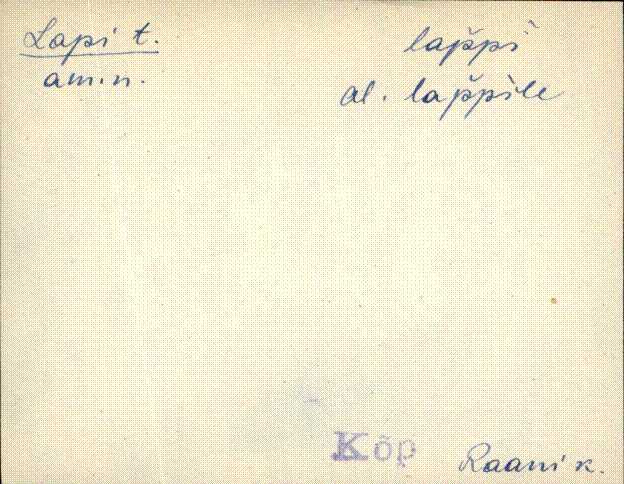 Lapi t.
am.n.
lap̌p̌i
al. lap̌p̌ile
Kõp
Raani k.